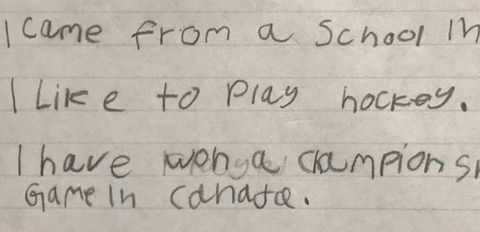 I came from a School In
I Like to Play hockey.
I have won a
Game In Canada.